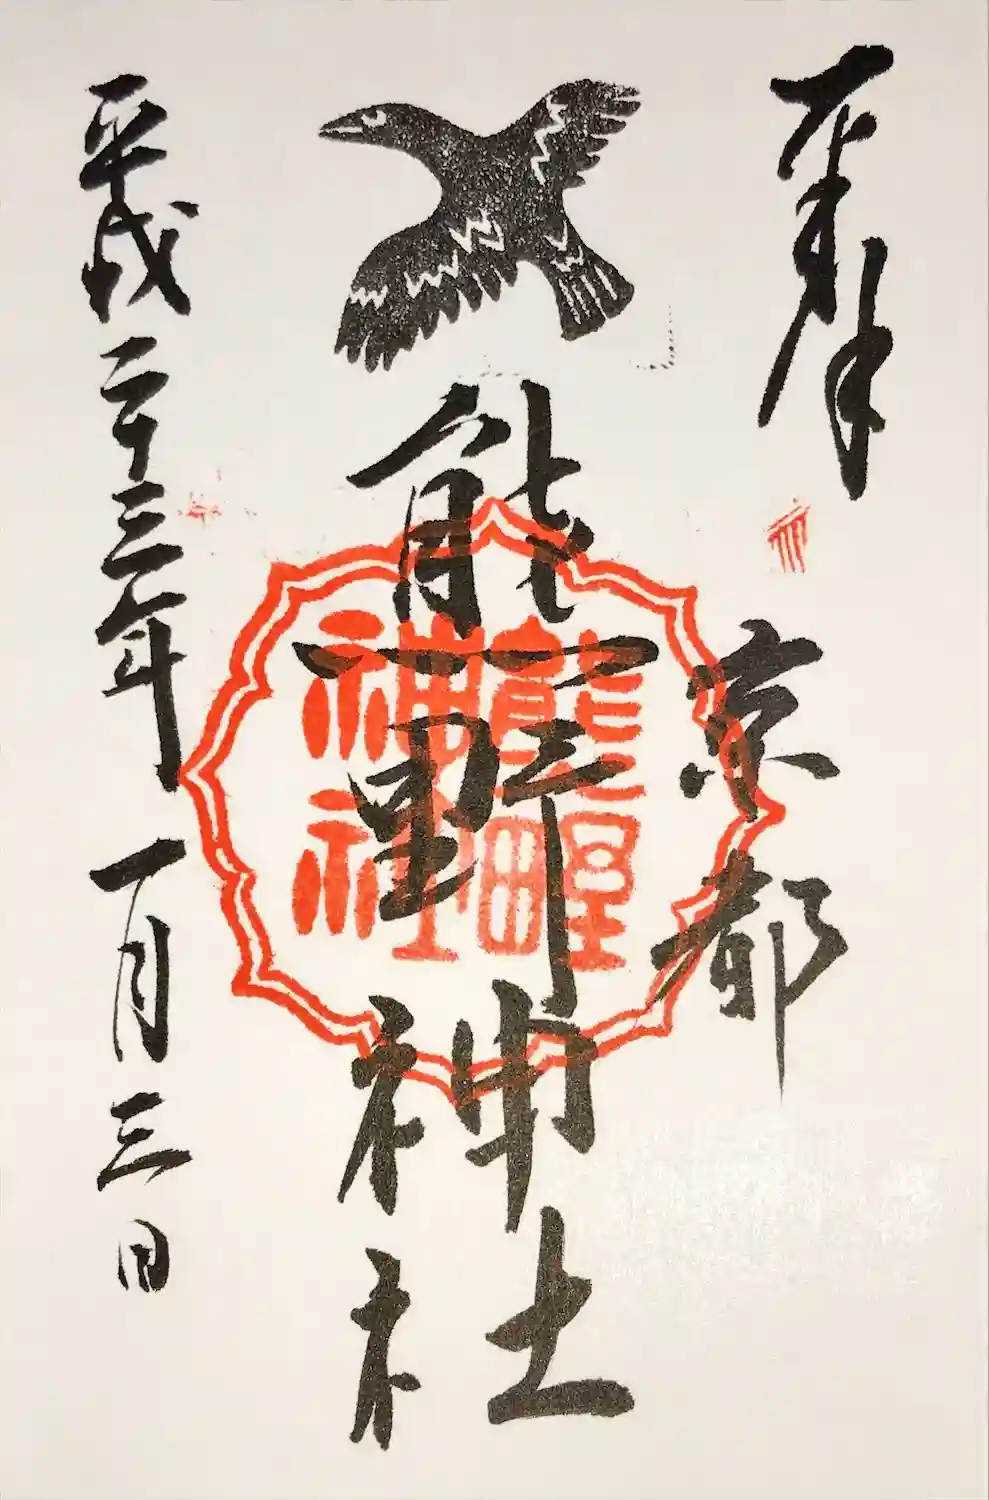 奉拝
京都
熊野神社
熊野神社
平成二十三年一月三日